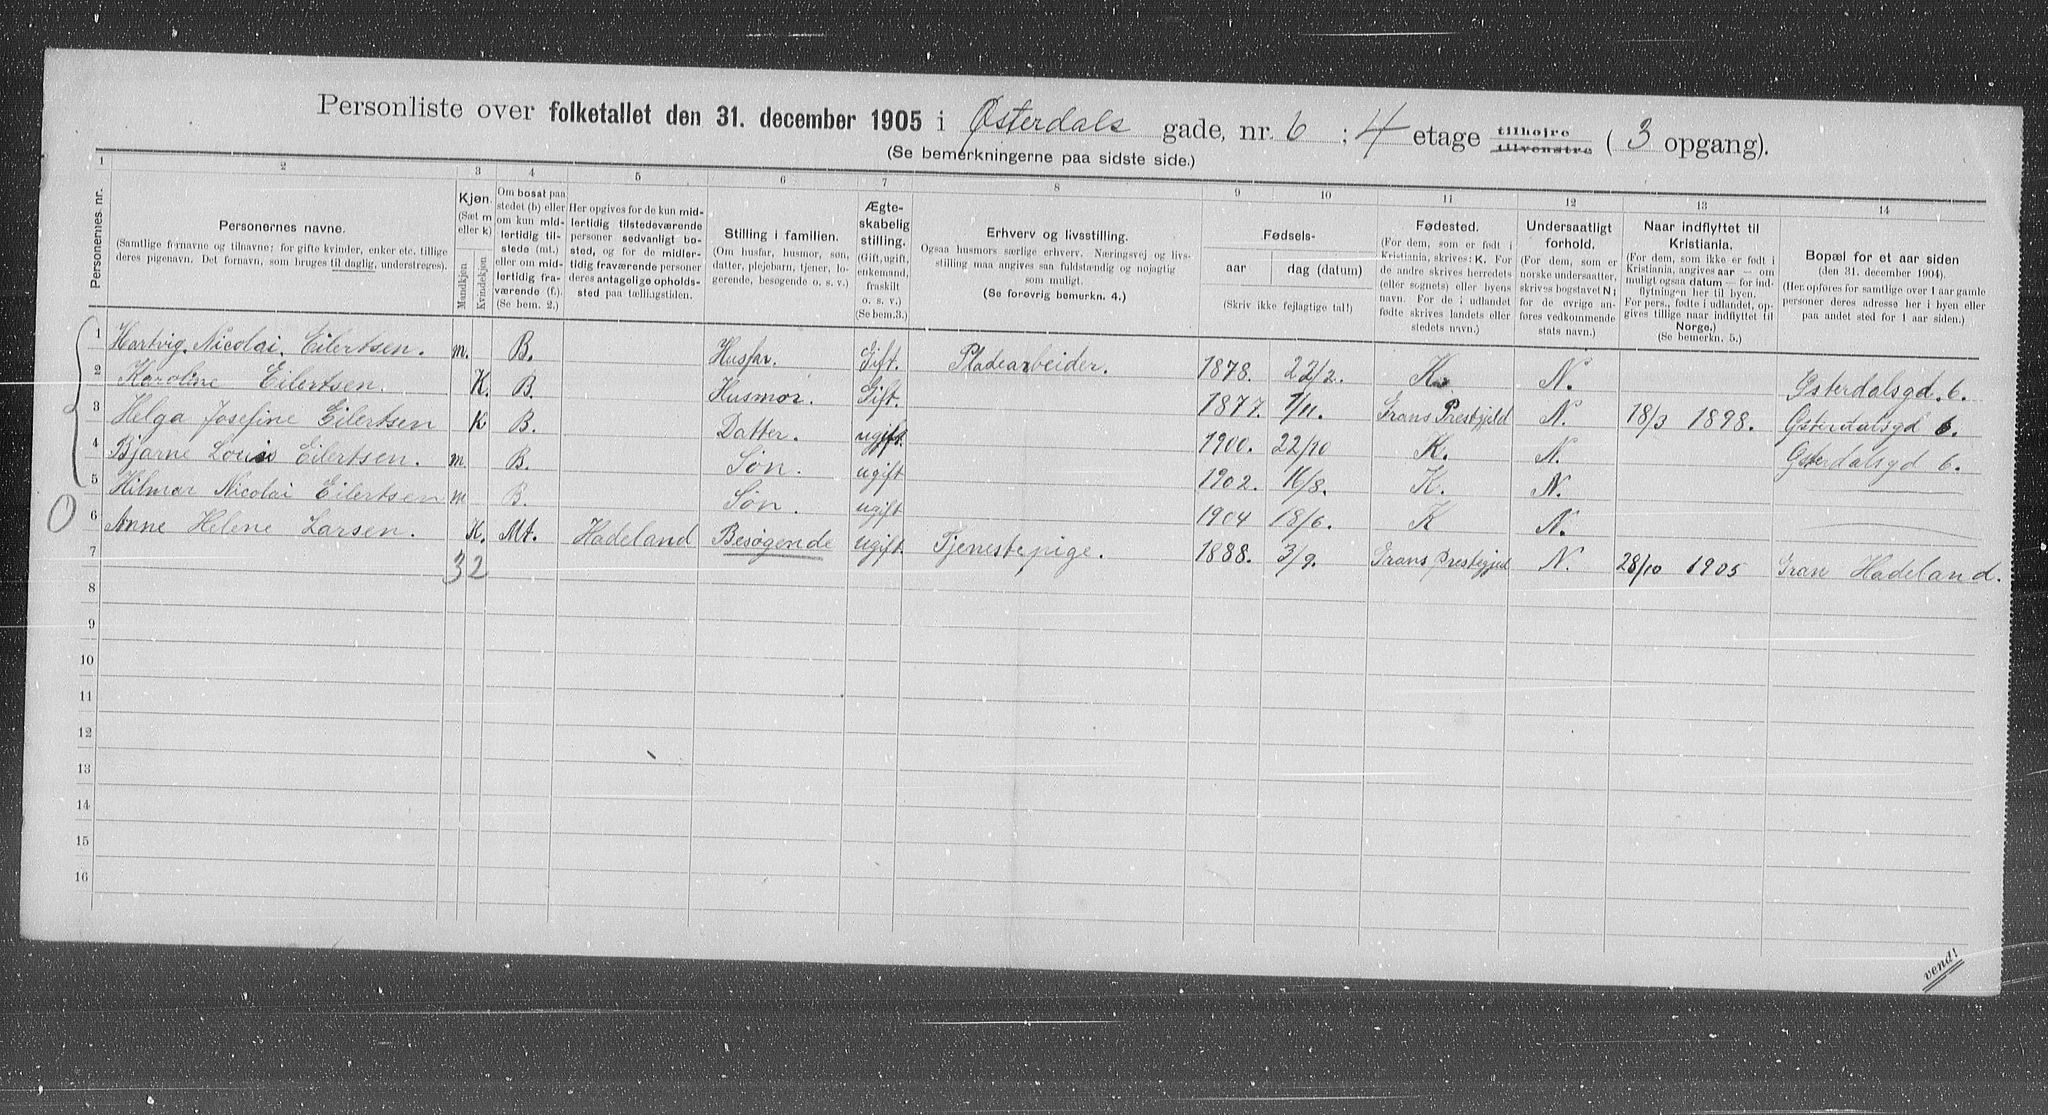 Personliste over folketallet den 31. december 1905 i Østerdals gade, nr. 6 ; 4 etage tilhøjre tilvenstre ( 3 opgang).
(Se bemerkningerne paa sidste side.)
1 2 3 4 5 6 7 8 9 10 11 12 13 14
Personernes nr.
Personernes navne.
(Samtlige fornavne og tilnavne; for gifte kvinder, enker etc. tillige
deres pigenavn. Det fornavn, som bruges til daglig, understreges).
Kjøn.
(Sæt m
eller k)
Mandkjøn
Kvindekjøn.
Om bosat paa
stedet (b) eller
om kun mid-
lertidig til-
stede (mt.)
eller om mid-
lertidig fra-
værende (f.)
(Se bem. 2.)
Her opgives for de kun mid-
lertidig tilstedeværende
personer sedvanligt bo-
sted, og for de midler-
tidig fraværende personer
deres antagelige opholds-
sted paa tællingstiden.
Stilling i familien.
(Om husfar, husmor, søn,
datter, plejebarn, tjener, lo-
gerende, besøgende o. s. v.)
Ægte-
skabelig
stilling.
(Gift, ugift,
enkemand,
fraskilt
o. s. v.)
(Se bem.3.)
Erhverv og livsstilling.
Ogsaa husmors særlige erhverv. Næringsvej og livs-
stilling maa angives saa fuldstændig og nøjagtig
som muligt.
(Se forøvrig bemerkn. 4.)
Fødsels-
aar
dag (datum)
(Skriv ikke fejlagtige tal!)
Fødested.
(For dem, som er født i
Kristiania, skrives: K. For
de andre skrives herredets
(eller sognets) eller byens
navn. For de i udlandet
fødte skrives landets eller
stedets navn.)
Undersaatligt
forhold.
(For dem, som er
norske undersaatter,
skrives bogstavet N;
for de øvrige an-
føres vedkommende
stats navn.)
Naar indflyttet til
Kristiania.
(For dem, som ikke er født i
Kristiania, angives aar — om
muligt ogsaa datum — for ind-
flytningen her til byen.
For pers., fødte i udlandet, op-
gives tillige naar indflyttet til
Norge.)
(Se bemerkn. 5.)
Bopæl for et aar siden
(den 31. december 1904).
(Her opføres for samtlige over 1 aar gamle
personer deres adresse her i byen eller
paa andet sted for 1 aar siden.)
1 Hartvig. Nicolai. Eilertsen. m. B. Husfar. Gift. Pladearbeider. 1878. 22/2. K. N. Østerdalsgd. 6.
2 Karoline Eilertsen. K. B. Husmor. Gift. 1877. 1/11. Grans Prestgjeld N. 18/3 1898. Østerdalsgd 6.
3 Helga Josefine Eilertsen K B. Datter. ugift. 1900. 22/10 K. N. Østerdalsgd 6.
4 Bjarne Louis Eilertsen. m. B. Søn. ugift 1902. 16/8. K. N.
5 Hilmar Nicolai Eilertsen m B. Søn. ugift 1904 18/6. K N.
6 Anne Helene Larsen. K. Mt. Hadeland Besøgende ugift. Tjenestepige. 1888. 3/9. Grans Prestegjed N. 28/10 1905 Gran Hadeland.
7 32
8
9
10
11
12
13
14
15
16
vend!